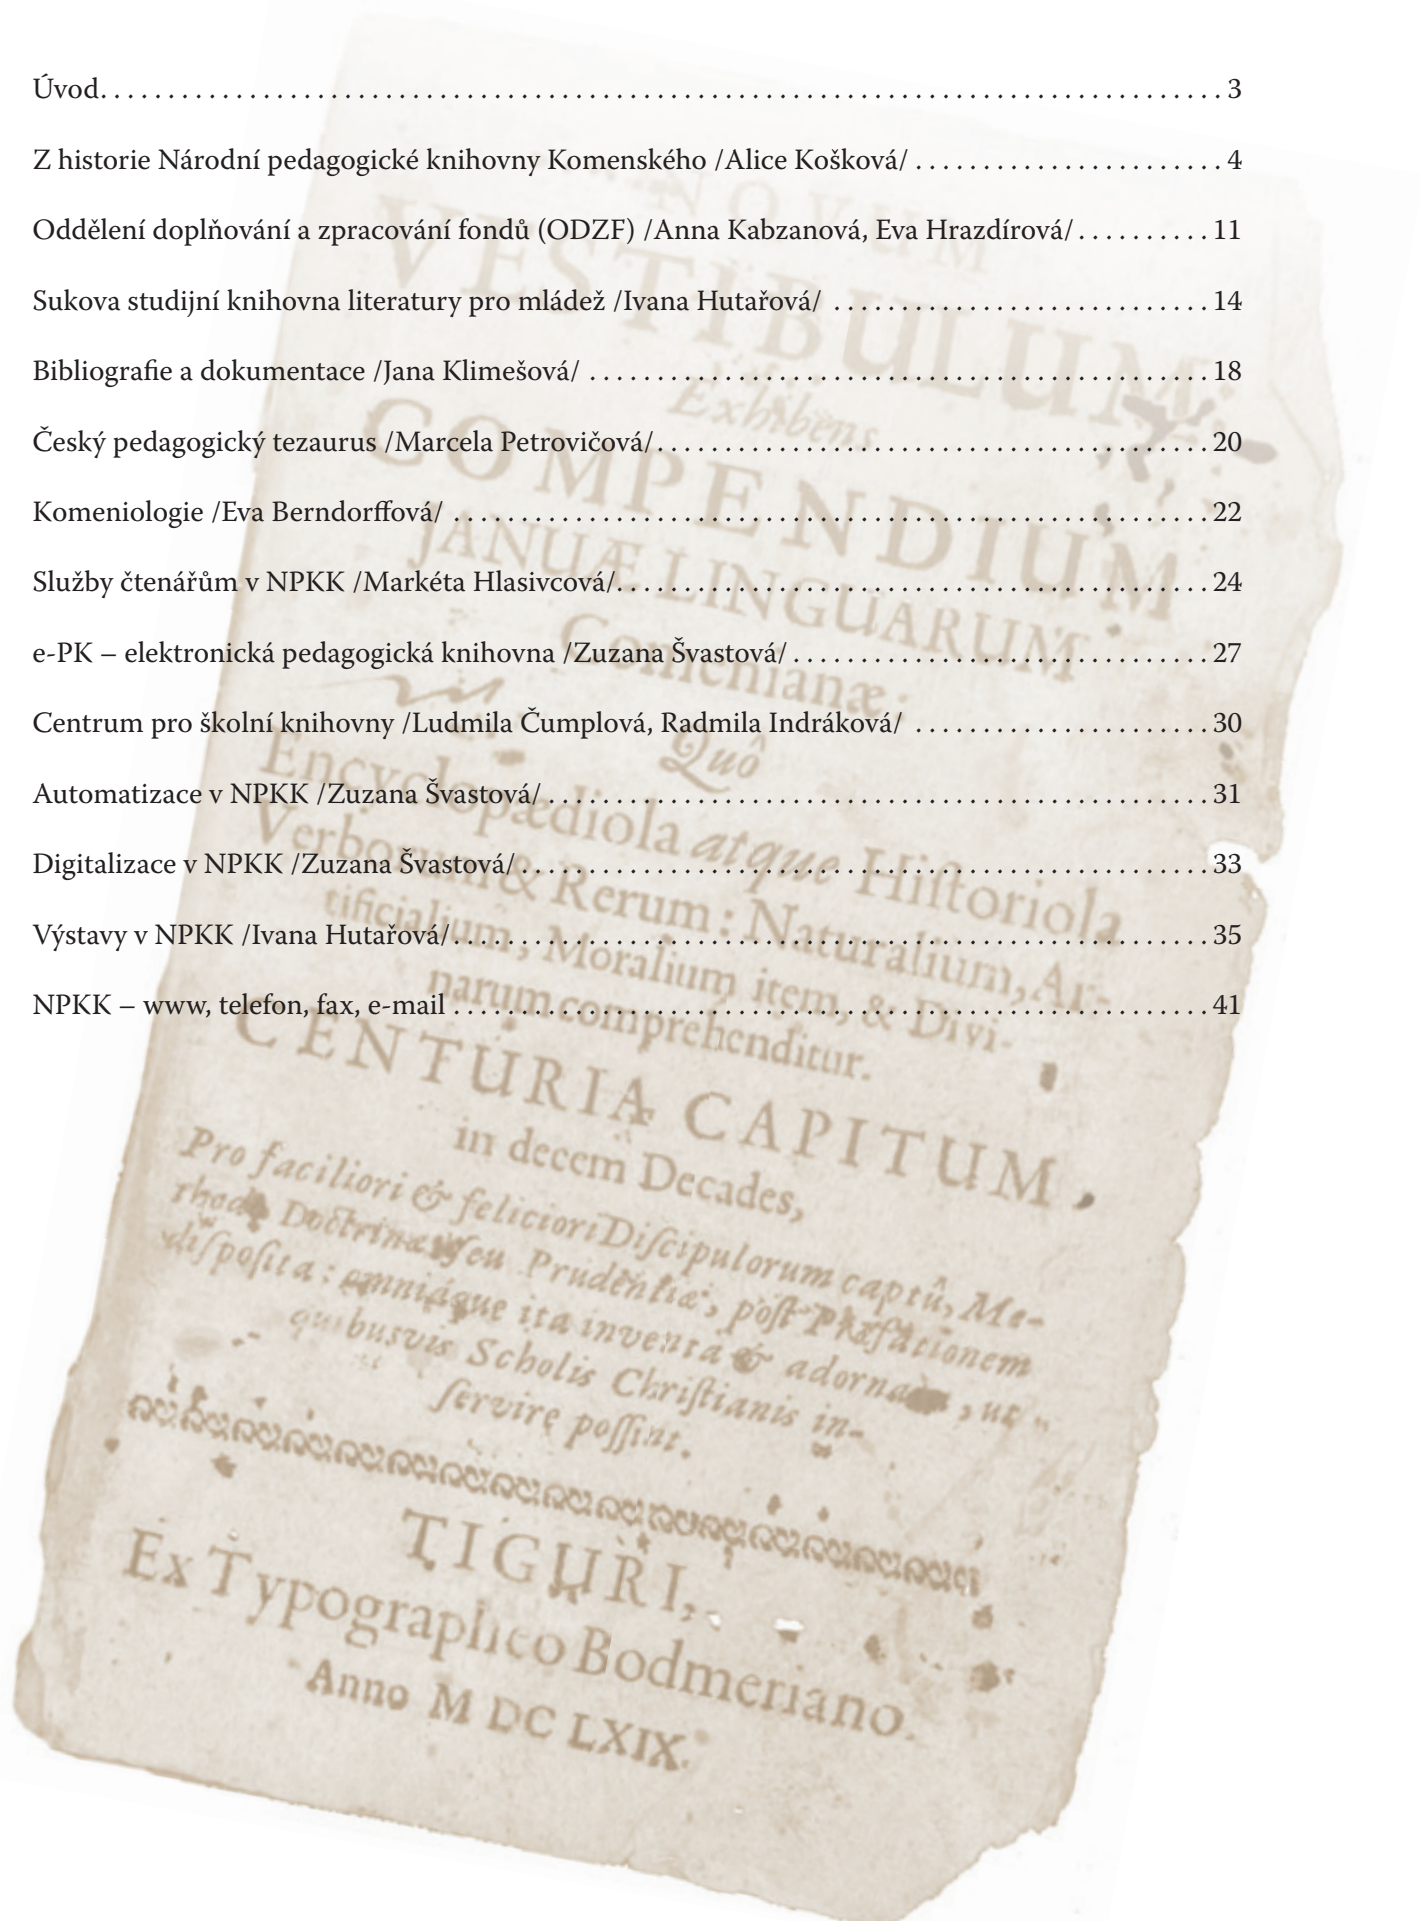 Úvod. . . . . . . . . . . . . . . . . . . . . . . . . . . . . . . . . . . . . . . . . . . . . . . . . . . . . . . . . . . . . . . . . . . . . . . . . . . . . . . . . . . 3
Z historie Národní pedagogické knihovny Komenského /Alice Košková/ . . . . . . . . . . . . . . . . . . . . . . . 4
Oddělení doplňování a zpracování fondů (ODZF) /Anna Kabzanová, Eva Hrazdírová/ . . . . . . . . . . 11
Sukova studijní knihovna literatury pro mládež /Ivana Hutařová/ . . . . . . . . . . . . . . . . . . . . . . . . . . . . 14
Bibliografie a dokumentace /Jana Klimešová/ . . . . . . . . . . . . . . . . . . . . . . . . . . . . . . . . . . . . . . . . . . . . . . 18
Český pedagogický tezaurus /Marcela Petrovičová/ . . . . . . . . . . . . . . . . . . . . . . . . . . . . . . . . . . . . . . . . . 20
Komeniologie /Eva Berndorffová/ . . . . . . . . . . . . . . . . . . . . . . . . . . . . . . . . . . . . . . . . . . . . . . . . . . . . . . . . 22
Služby čtenářům v NPKK /Markéta Hlasivcová/ . . . . . . . . . . . . . . . . . . . . . . . . . . . . . . . . . . . . . . . . . . . . 24
e-PK – elektronická pedagogická knihovna /Zuzana Švastová/ . . . . . . . . . . . . . . . . . . . . . . . . . . . . . . . 27
Centrum pro školní knihovny /Ludmila Čumplová, Radmila Indráková/ . . . . . . . . . . . . . . . . . . . . . . 30
Automatizace v NPKK /Zuzana Švastová/ . . . . . . . . . . . . . . . . . . . . . . . . . . . . . . . . . . . . . . . . . . . . . . . . . 31
Digitalizace v NPKK /Zuzana Švastová/ . . . . . . . . . . . . . . . . . . . . . . . . . . . . . . . . . . . . . . . . . . . . . . . . . . . 33
Výstavy v NPKK /Ivana Hutařová/ . . . . . . . . . . . . . . . . . . . . . . . . . . . . . . . . . . . . . . . . . . . . . . . . . . . . . . . . 35
NPKK – www, telefon, fax, e-mail . . . . . . . . . . . . . . . . . . . . . . . . . . . . . . . . . . . . . . . . . . . . . . . . . . . . . . . . 41
NOVUM
VESTIBULUM
Exhibens
COMPENDIUM
JANUÆ LINGUARUM
Comenianæ.
Quô
Encyclopædiola atque Hiſtoriola
Verborum & Rerum: Naturalium, Ar-
tificialium, Moralium item, & Divi-
narum comprehenditur.
CENTURIA CAPITUM,
in decem Decades,
Pro faciliori & feliciori Diſcipulorum captû, Me-
thodo Doctrinæ ſeu Prudentiæ, poſt Præfationem
diſpoſita: omniáque ita inventa & adornata, ut
quibusvis Scholis Chriſtianis in-
ſervire poſſint.
TIGURI,
Ex Typographeo Bodmeriano.
Anno M DC LXIX.